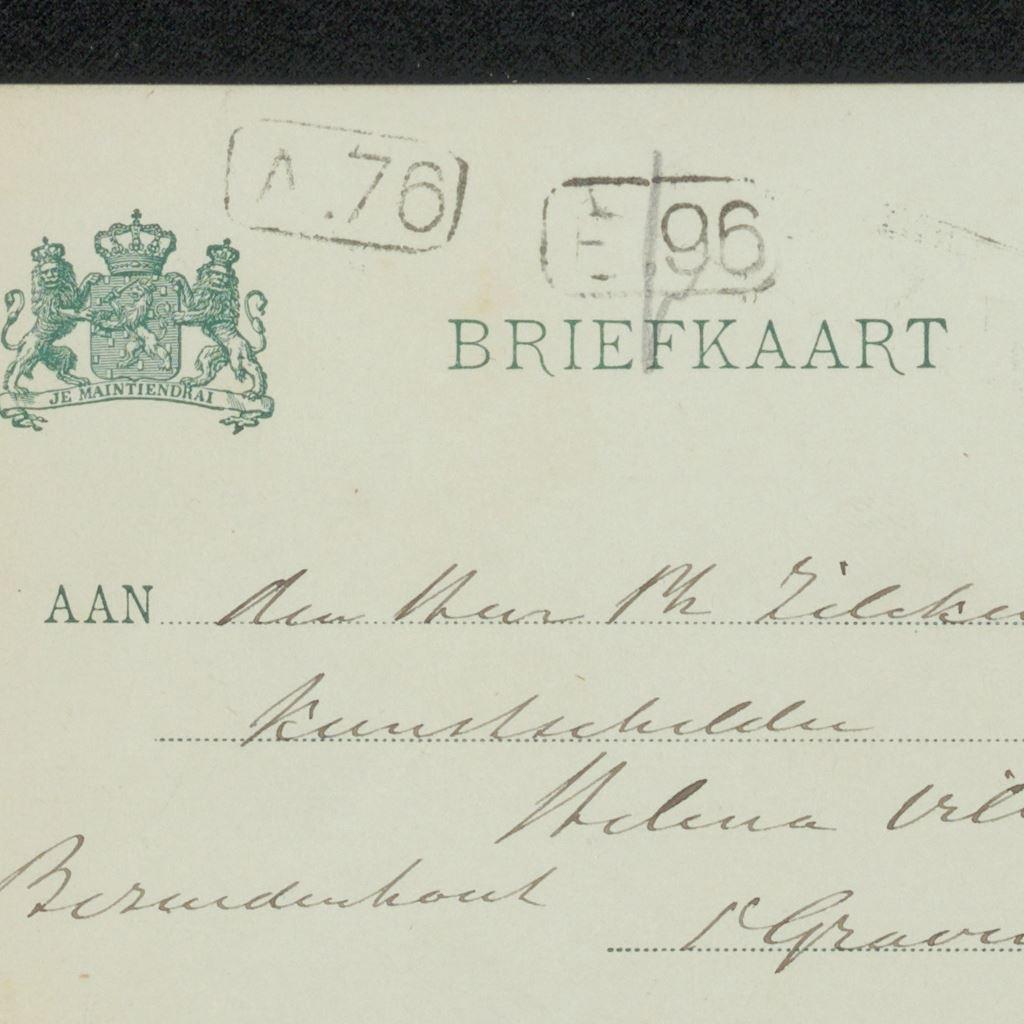 A.76
E.96
JE MAINTIENDRAI
BRIEFKAART
AAN den Heer Ph Zilcken
Kunstschilder
Helena Vil
Bezuidenhout
s' Graven